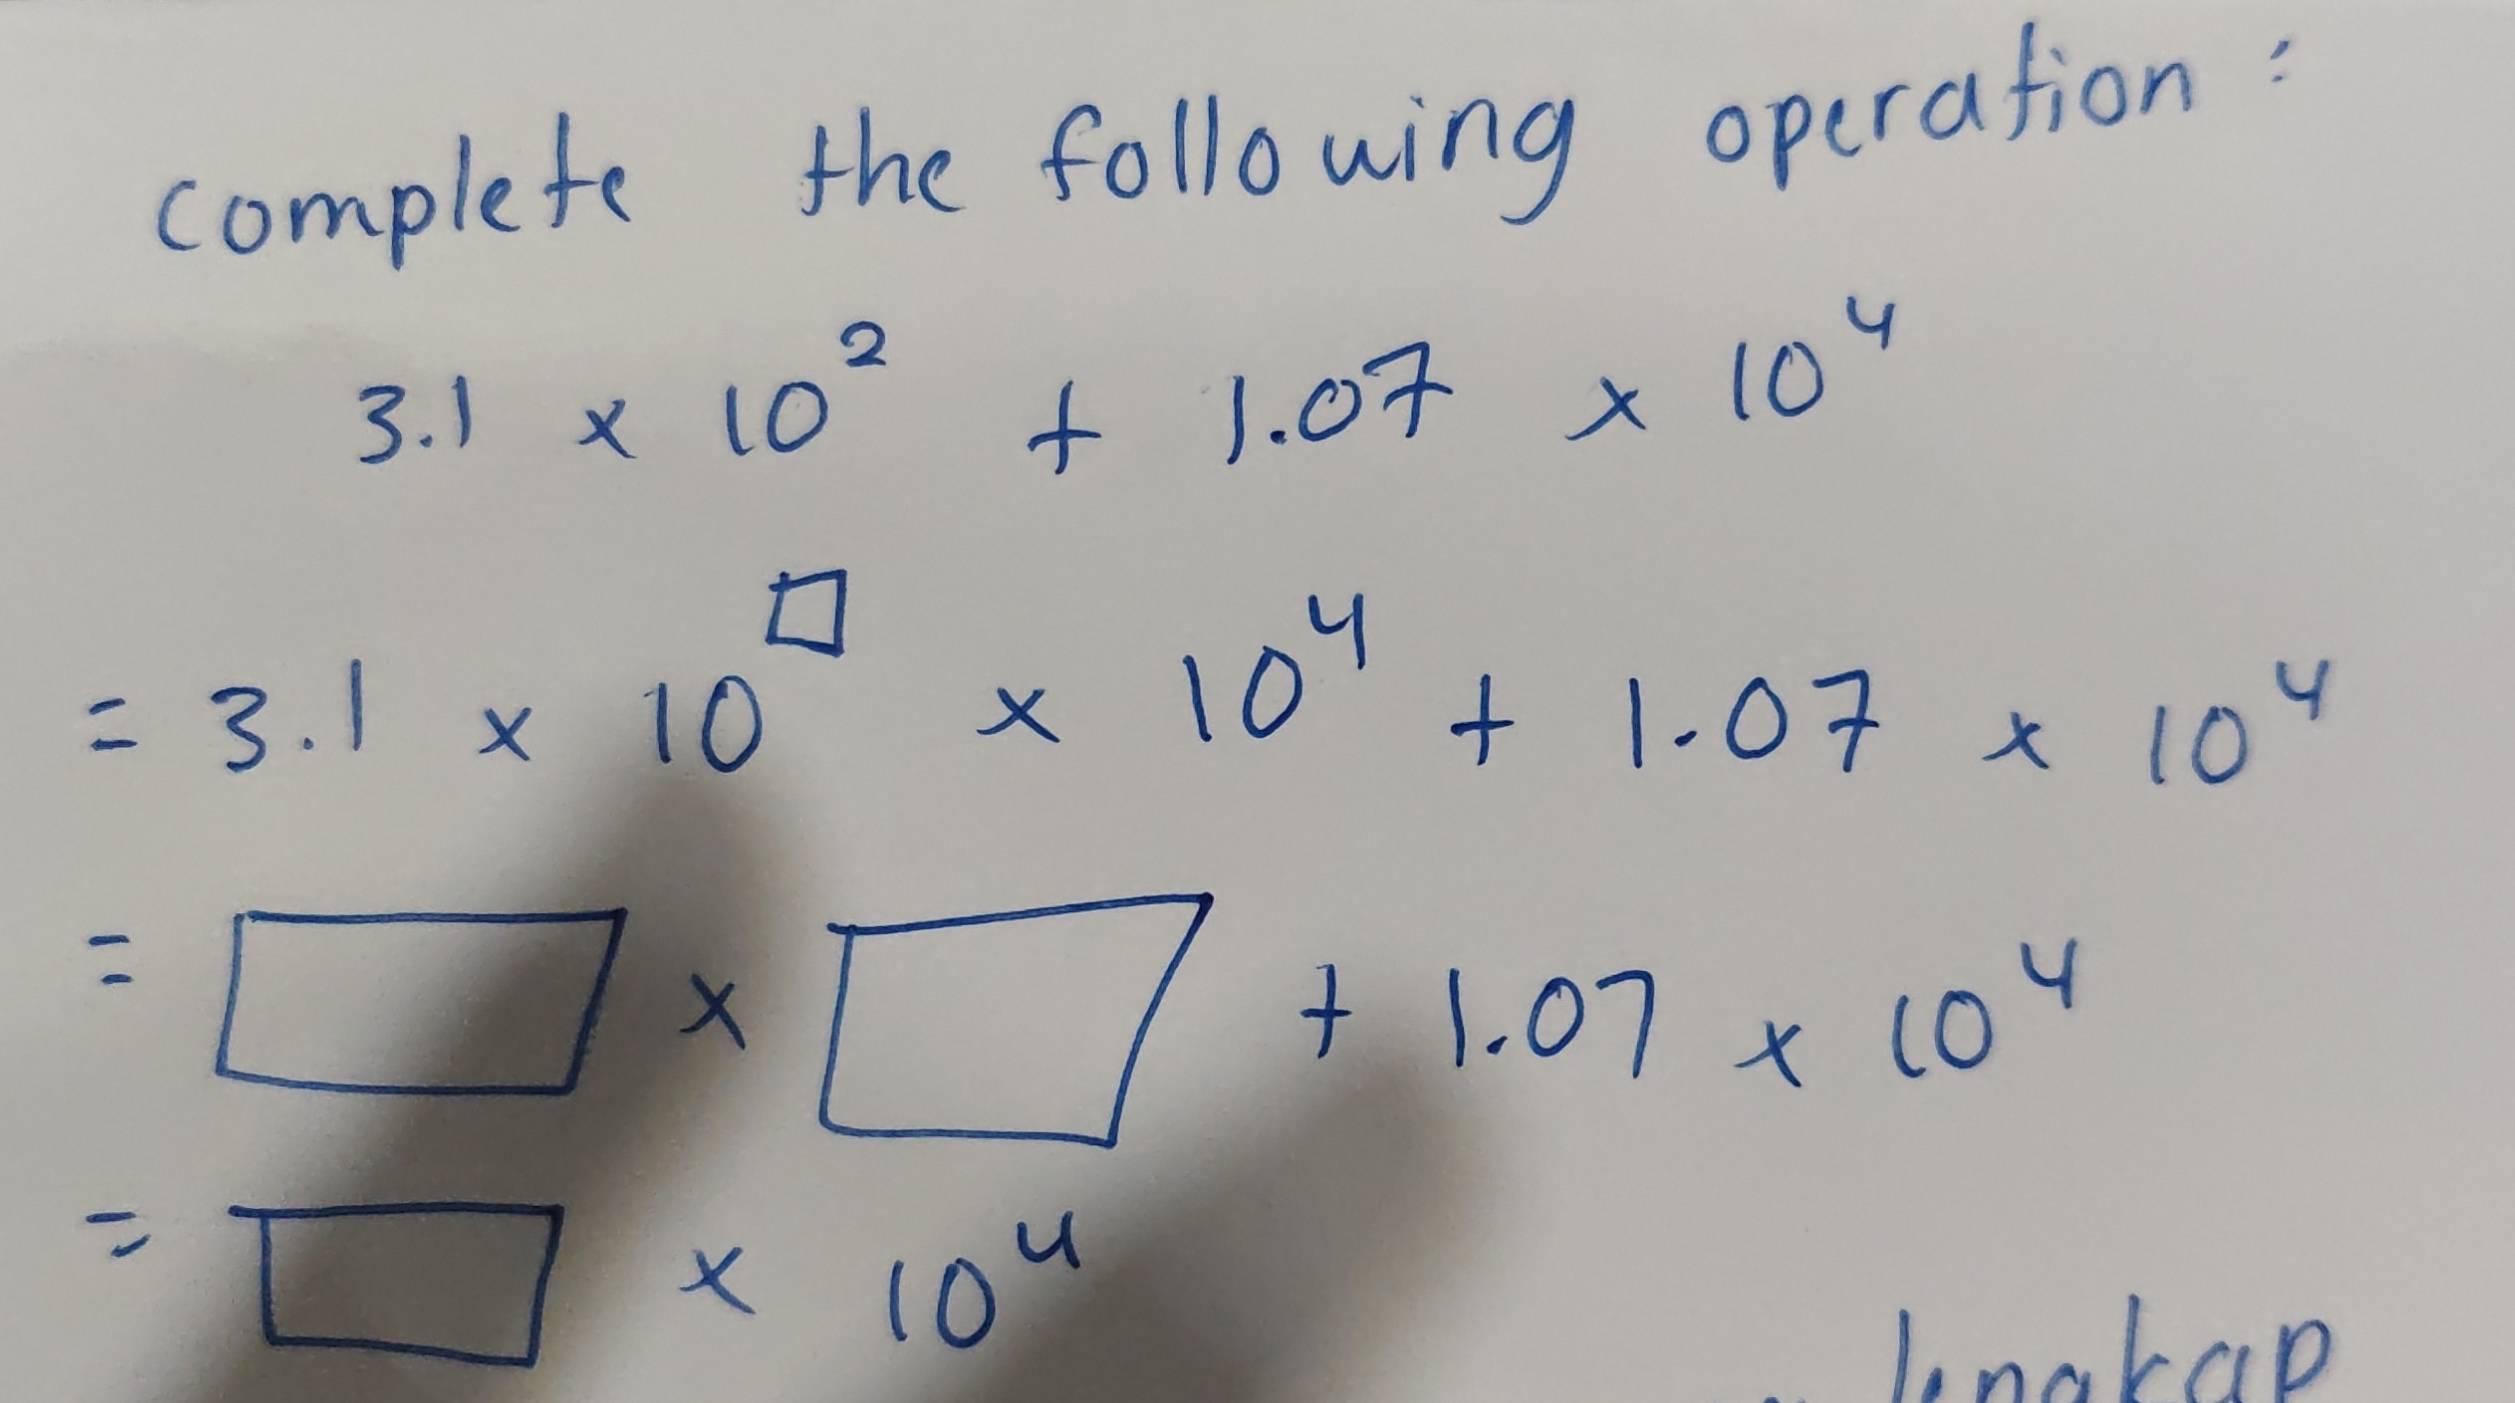 complete the following operation:
3.1 × 10² + 1.07 × 10⁴
= 3.1 × 10^□ × 10⁴ + 1.07 × 10⁴
= □ × □ + 1.07 × 10⁴
= □ × 10⁴
lengkap